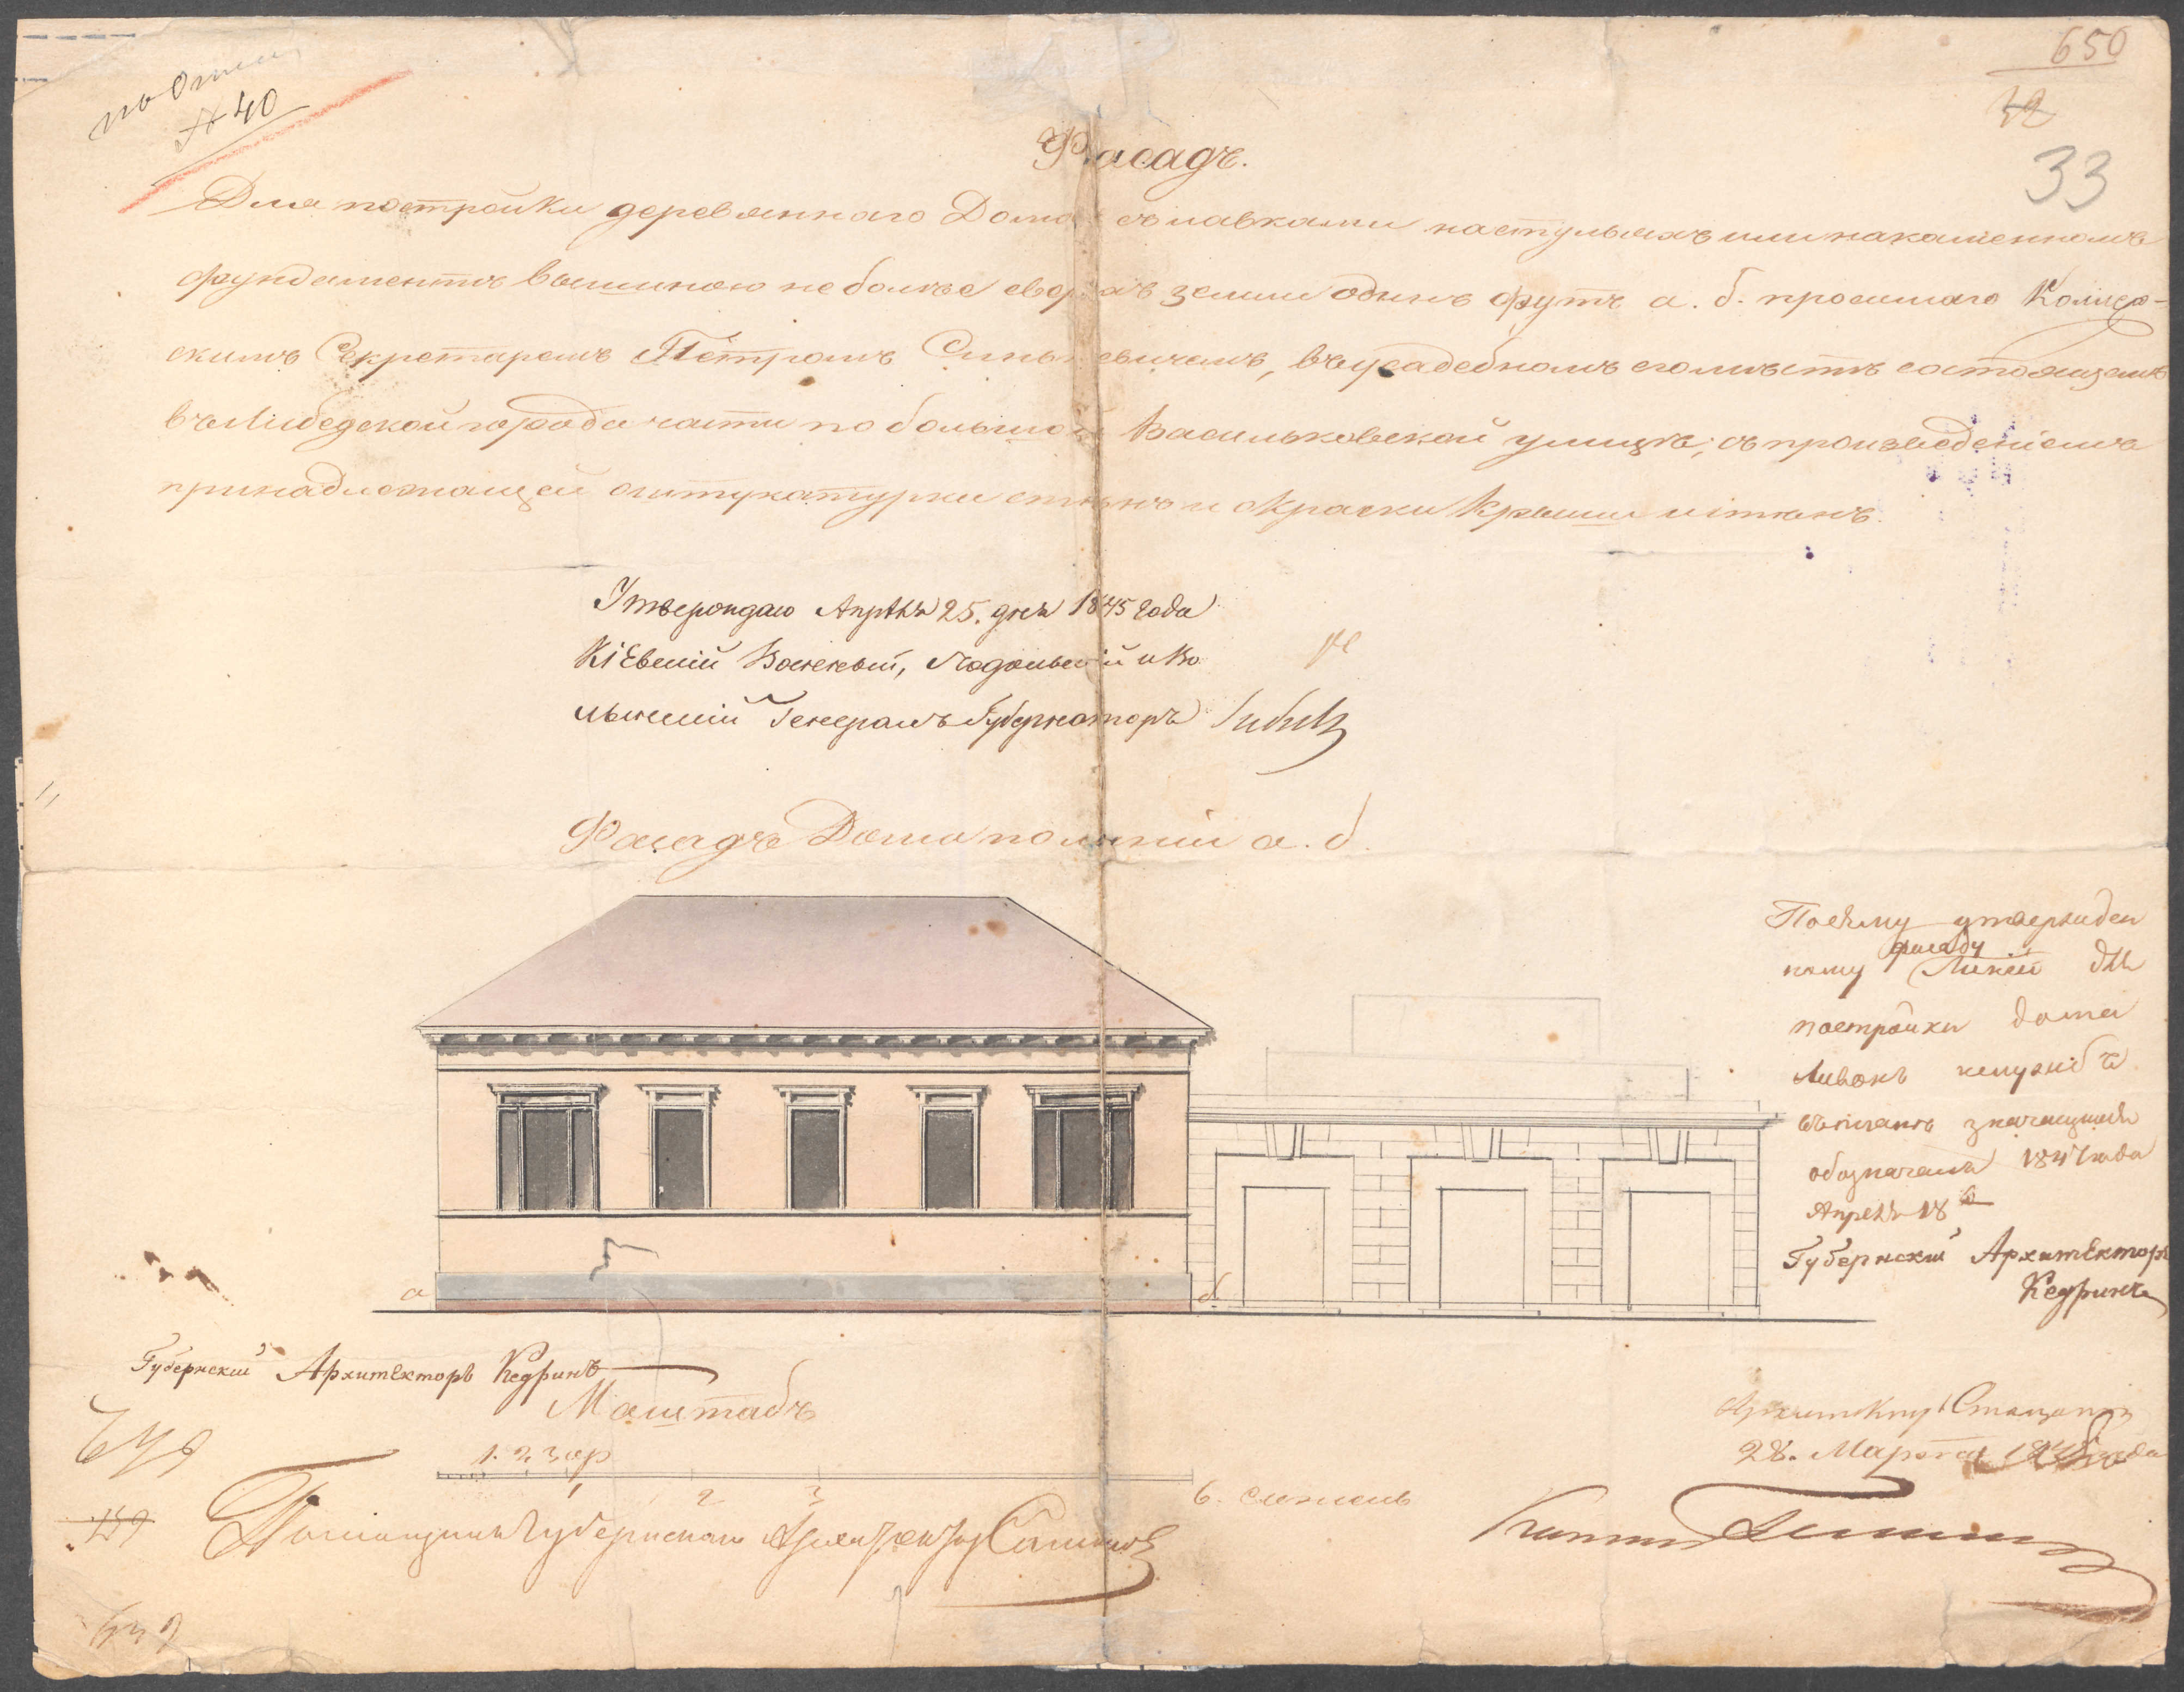 650
по описи
№ 40
32
33
Фасадъ.
Для постройки деревяннаго Дома съ лавками на стульяхъ или на каменномъ
фундаментѣ вышиною не болѣе сверхъ земли одинъ футъ а. б. просимаго Коллеж-
скимъ Секретаремъ Петромъ, въ усадебномъ его мѣстѣ состоящемъ
въ Либедской города части по большой Васильковской улицѣ, съ произведеніемъ
принадлежащей штукатурки стѣнъ и окраски крыши и стѣнъ.
Утверждаю Апрѣля 25. дня 1845 года
Кіевскій Военный, Подольскій и Во
лынскій Генералъ Губернаторъ Бибиковъ
Фасадъ Дома по линіи а. б.
По сему утвержден
ному фасаду Линій для
постройки дома
лавокъ
въ планѣ значущимся
обозначена 184 года
Апрѣля 18
Губернскій Архитекторъ
Кедринъ
а
б
Губернскій Архитекторъ Кедринъ
Маштабъ
1. 2. 3 ар
1 2 3 6. сажень
Помощникъ Губернскаго Архитектора
28. Марта года
649
459